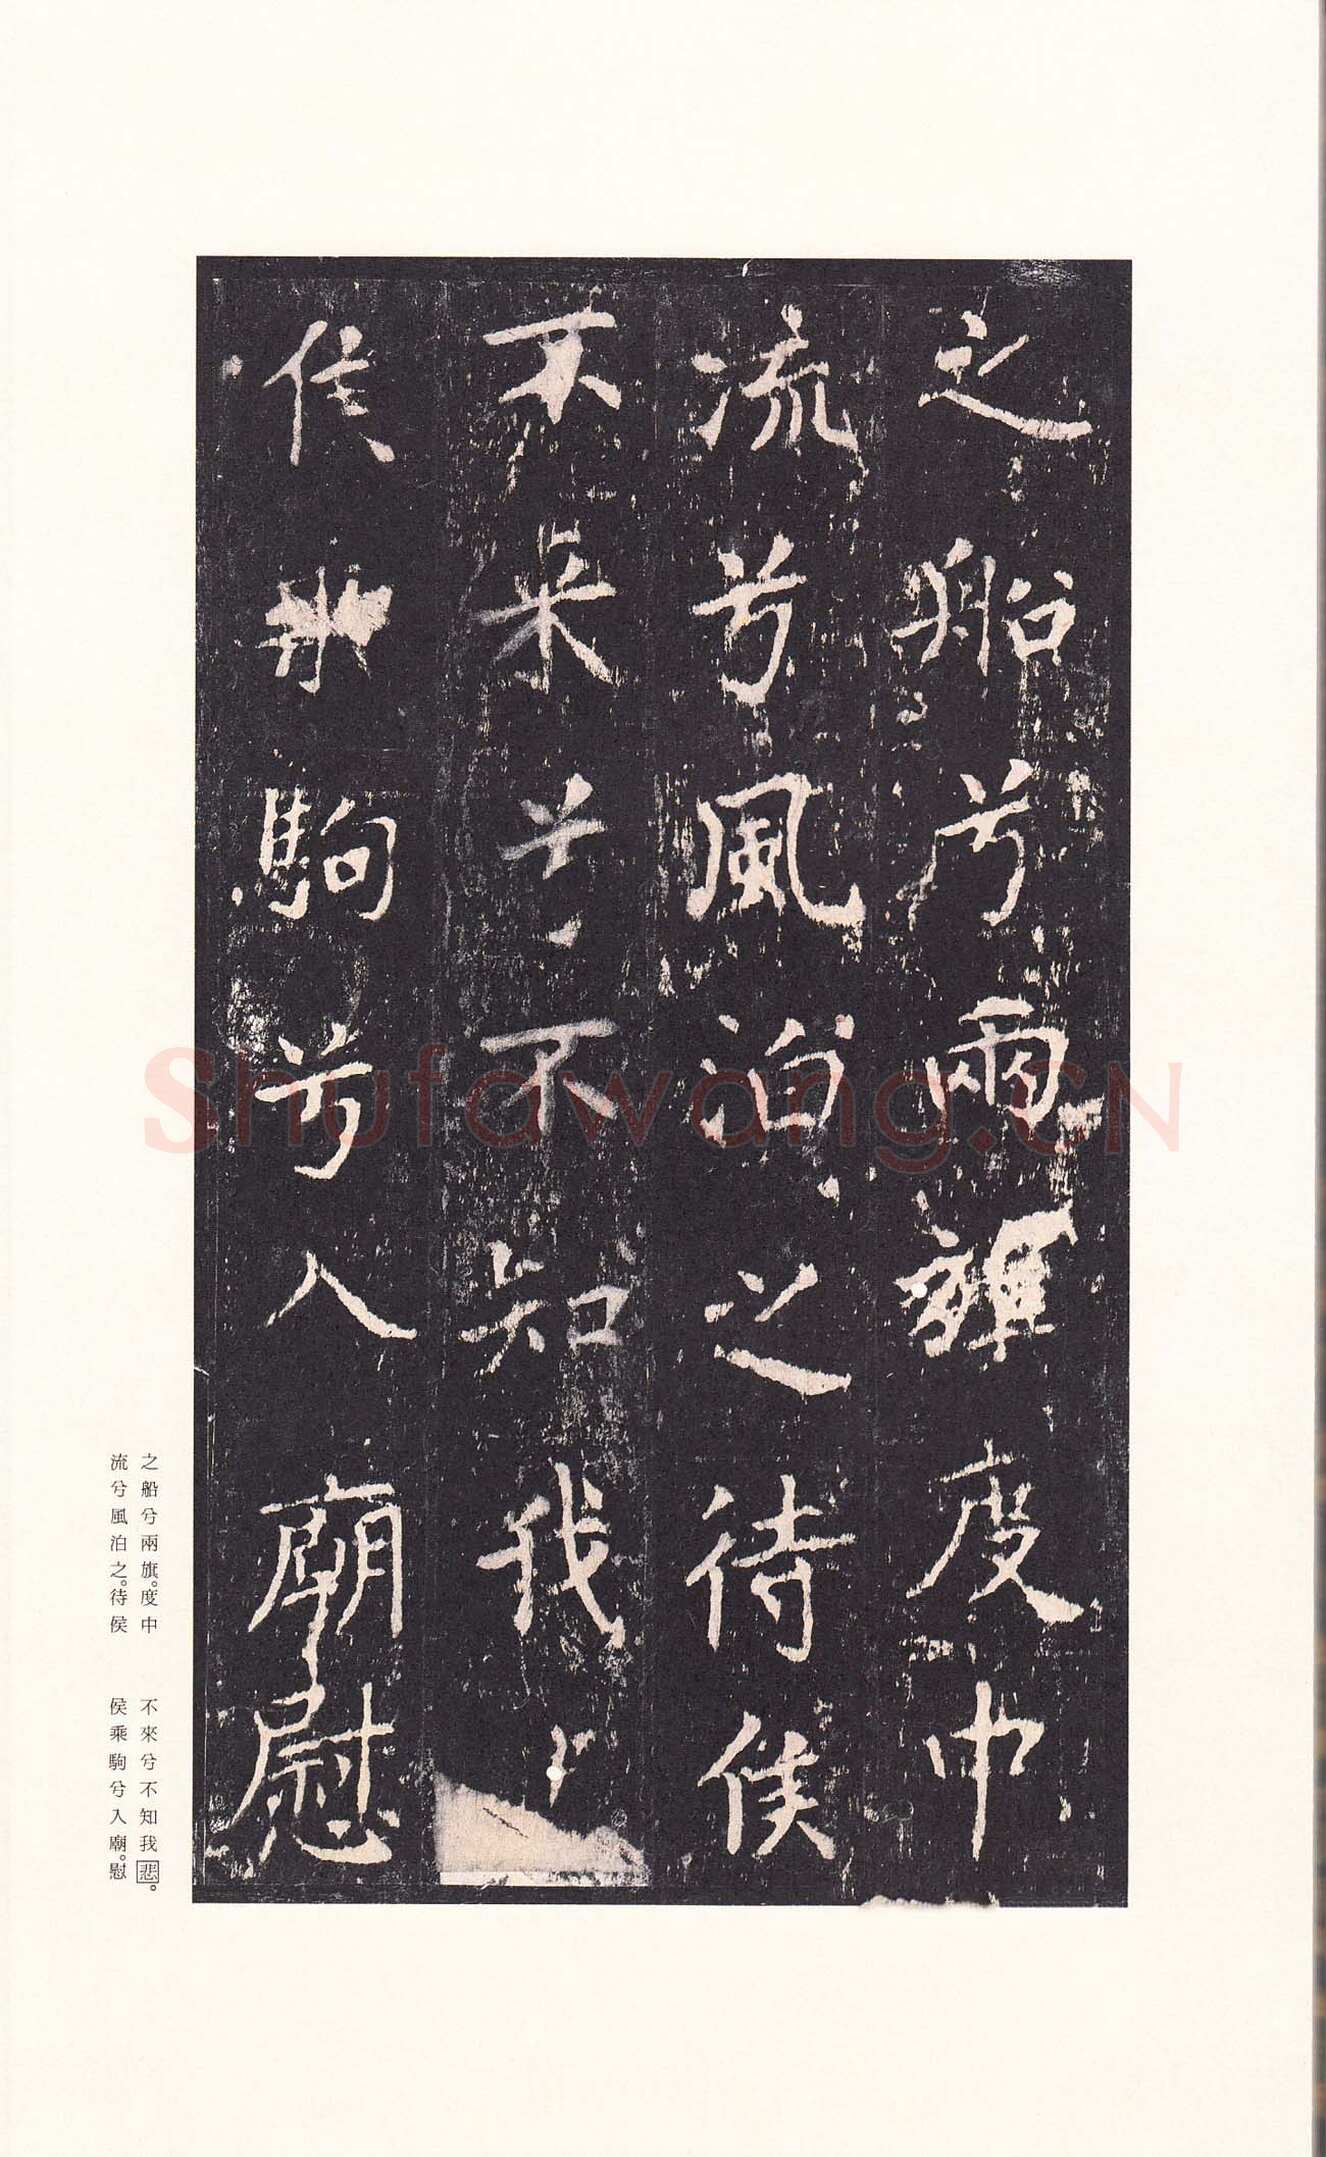 之船兮兩旗度中
流兮風泊之待侯
不來兮不知我
侯乘駒兮入廟慰
之船兮兩旗。度中
流兮風泊之。待侯
不來兮不知我悲。
侯乘駒兮入廟。慰
Shufawang.CN